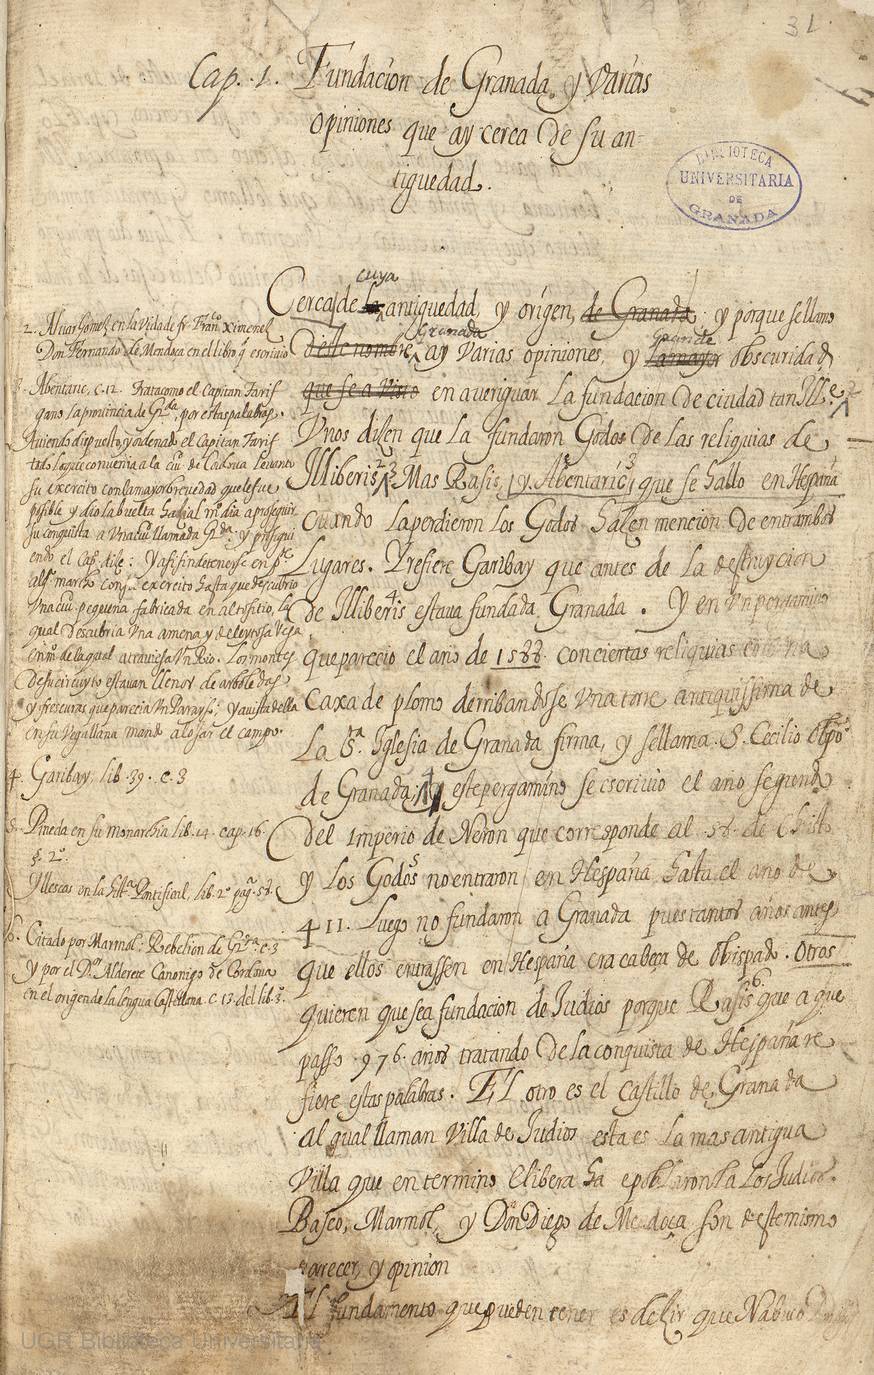 31
Cap. 1. Fundacion de Granada, y varias
opiniones que ay cerca de su an-
tiguedad.
BIBLIOTECA
UNIVERSITARIA
DE
GRANADA
cuya
Cerca de la antiguedad, y origen, de Granada y porque se llamo
Granada grande
deste nombre, ay varias opiniones, y la mayor obscuridad
que se a visto en averiguar la fundacion de ciudad tan Ille. 2
Vnos disen que la fundaron Godos de las reliquias de
Illiberis 2 3 Mas Rasis, y Abentaric, 3 que se hallo en Hespaña
cuando la perdieron los Godos hasen mencion de entrambos
Lugares. Y refiere Garibay que antes de la destruycion
de Illiberis 4 estava fundada Granada. Y en vn pergamino
que parecio el año de 1588. con ciertas reliquias en vna
caxa de plomo derribandose vna torre antiquissima de
La Sta. Iglesia de Granada firma, y se llama S. Cecilio Obpo.
de Granada; y este pergamino se escrivio el año segundo
del imperio de Neron que corresponde al 58. de Christo
y los Godos 5 no entraron en Hespaña hasta el año de
411. Luego no fundaron a Granada pues tantos años antes
que ellos entrassen en Hespaña era cabeça de obispado. Otros
quieren que sea fundacion de Judios porque Rasis 6 que a que
passo 976. años tratando de la conquista de Hespaña re
fiere estas palabras. El otro es el castillo de Granada
al qual llaman Villa de Judios esta es la mas antigua
Villa que en termino Elibera ha e poblaronla los Judios.
Baseo, Marmol, y Don Diego de Mendoça son deste mismo
parecer, y opinion
El fundamento que pueden tener es dezir que Nabuc
2. Alvar Gomez en la vida de fr. Franco. Ximenez
Don Fernando de Mendoça en el libro q escrivio
3. Abentaric, c. 12. Trata como el Capitan Tarif
gano la provincia de Grda. por estas palabras.
Aviendo dispuesto y ordenado el Capitan Tarif
todo lo que convenia a la ciu. de Cadova levanto
su exercito con la mayor brevedad que le fue
posible y dio la buelta hasia el m. dia a proseguir
su conquista a vna ciu. llamada Grda. y prosigui
endo el Cap. dise: y assi sin detenerse en pte.
algª. marcho con su exercito hasta que descubrio
vna ciu. pequeña fabricada en alto sitio, la
qual descubria vna amena y deleytosa Vega,
en m. de la qual atraviesa vn Rio. Los montes
de su circuyto estavan llenos de arboledas
y frescuras que parecia vn Parayso; y a vista della
en su Vega llana mando alojar el campo.
4. Garibay, lib. 39. c. 3
5. Pineda en su monarchia lib. 14. cap. 16.
§. 2º.
Yllescas en la histª. Pontifical, lib. 2º pag. 58.
6. Citado por Marmol: Rebelion de Grda. c. 3
y por el Dor. Alderete Canonigo de Cordova
en el origen de la lengua Castellana. c. 13. del lib. 3.
UGR Biblioteca Universitaria